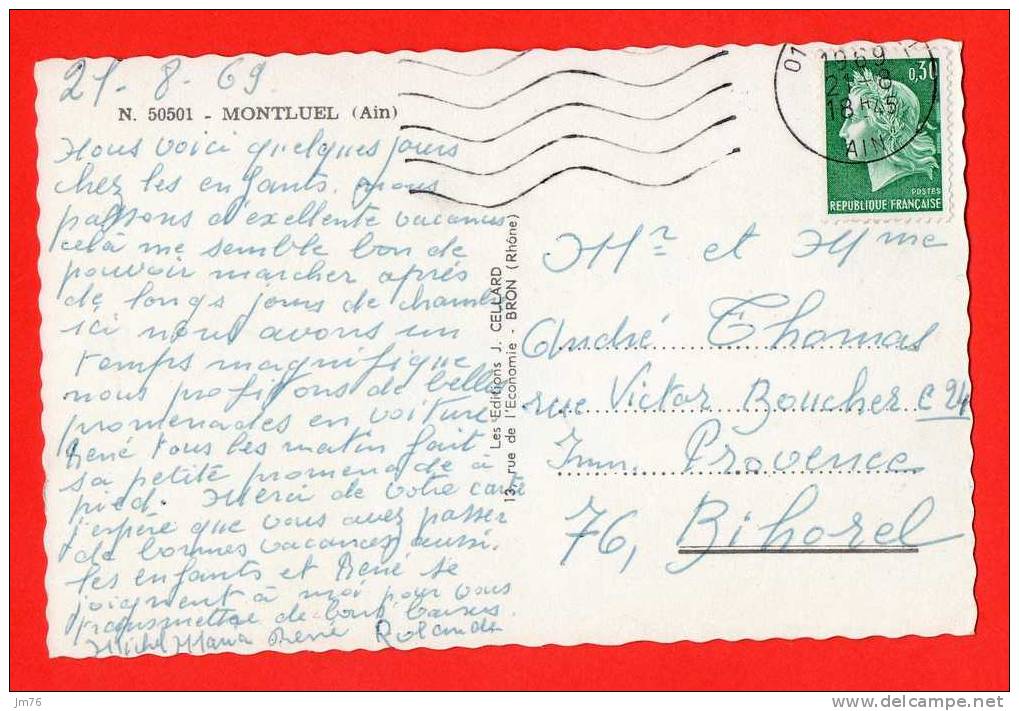 21-8-69
N. 50501 - MONTLUEL (Ain)
Nous voici quelques jours
chez les enfants. nous
passons d'excellente vacances
celà me semble bon de
pouvoir marcher après
de longs jours de chambre
ici nous avons un
temps magnifique
nous profitons de belles
promenades en voiture
René tous les matin fait
sa petite promenade à
pied. Merci de votre carte
j'espère que vous avez passer
de bonnes vacances aussi.
les enfants et René se
joignent à moi pour vous
transmettre de bons baisers.
Michel Maria René Rolande
Les Editions J. CELLARD
13, rue de l'Economie - BRON (Rhône)
01
1969
21-8
18H45
AIN
0,30
POSTES
REPUBLIQUE FRANÇAISE
Mr et Mme
André Thomas
rue Victor Boucher C 94
Imm. Provence
76, Bihorel
jm76
www.delcampe.net